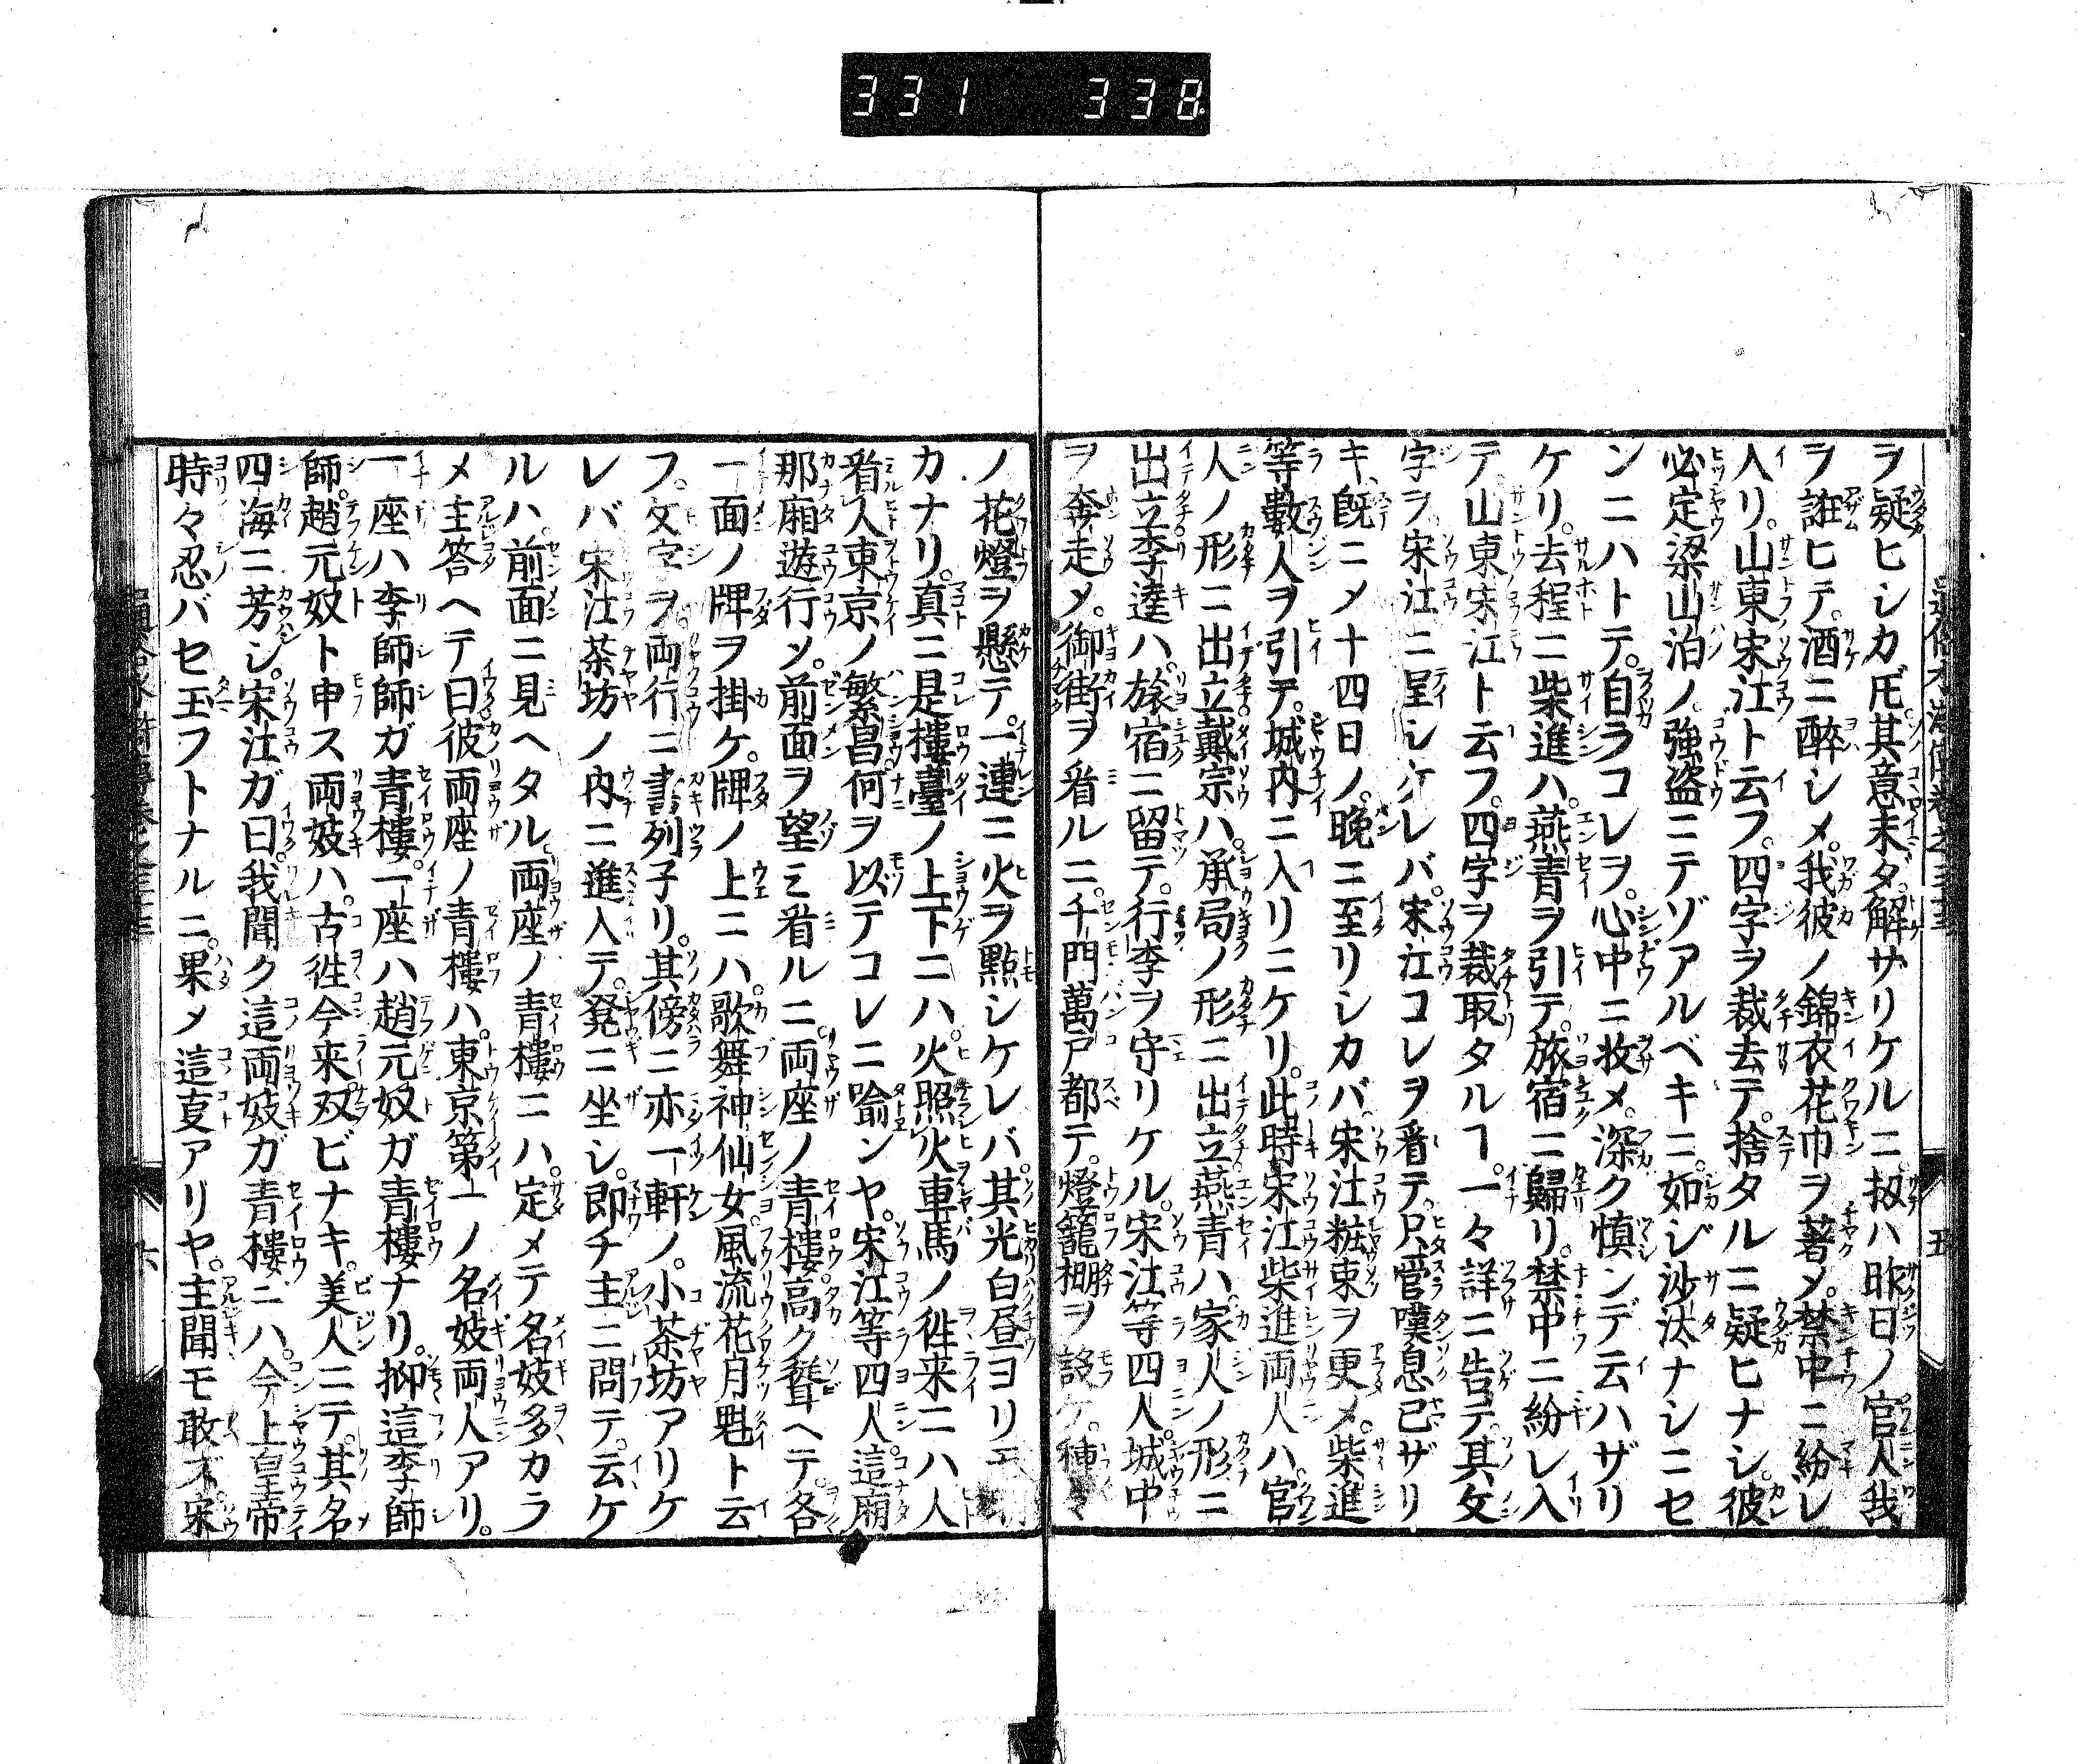 331 338
ヲ疑ヒシカ𪜈其意未ダ解サリケルニ扨ハ昨日ノ官人我
ヲ誑ヒテ酒ニ醉シメ我彼ノ錦衣花巾ヲ著メ禁中ニ紛レ
入リ山東宋江ト云フ四字ヲ裁去テ捨タルニ疑ヒナシ彼
必定梁山泊ノ強盗ニテゾアルベキニ如シ沙汰ナシニセ
ンニハトテ自ラコレヲ心中ニ牧メ深ク慎ンデ云ハザリ
ケリ去程ニ柴進ハ燕青ヲ引テ旅宿ニ歸リ禁中ニ紛レ入
テ山東宋江ト云フ四字ヲ裁取タルヿ一々詳ニ告テ其文
字ヲ宋江ニ呈シケレバ宋江コレヲ看テ只管嘆息已ザリ
キ既ニメ十四日ノ晩ニ至リシカバ宋江粧束ヲ更メ柴進
等數人ヲ引テ城内ニ入リニケリ此時宋江柴進両人ハ官
人ノ形ニ出立戴宗ハ承局ノ形ニ出立燕青ハ家人ノ形ニ
出立李逵ハ旅宿ニ留テ行李ヲ守リケル宋江等四人城中
ヲ奔走メ御街ヲ看ルニ千門萬戸都テ燈籠棚ヲ設ケ種々
ノ花燈ヲ懸テ一連ニ火ヲ點シケレバ其光白昼ヨリモ
カナリ真ニ是樓臺ノ上下ニハ火照火車馬ノ徃来ニハ人
看人東京ノ繁昌何ヲ以テコレニ喩ンヤ宋江等四人這廂
那廂遊行ソ前面ヲ望ミ看ルニ両座ノ青樓高ク聳ヘテ各
一面ノ牌ヲ掛ケ牌ノ上ニハ歌舞神仙女風流花月魁ト云
フ文字ヲ両行ニ書列子リ其傍ニ亦一軒ノ小茶坊アリケ
レバ宋江茶坊ノ内ニ進入テ凳ニ坐シ即チ主ニ問テ云ケ
ルハ前面ニ見ヘタル両座ノ青樓ニハ定メテ名妓多カラ
メ主答ヘテ曰彼両座ノ青樓ハ東京第一ノ名妓両人アリ
一座ハ李師師ガ青樓一座ハ趙元奴ガ青樓ナリ抑這李師
師趙元奴ト申ス両妓ハ古徃今来双ビナキ美人ニテ其名
四海ニ芳シ宋江ガ曰我聞ク這両妓ガ青樓ニハ今上皇帝
時々忍バセ玉フトナルニ果メ這夏アリヤ主聞モ敢ズ宋